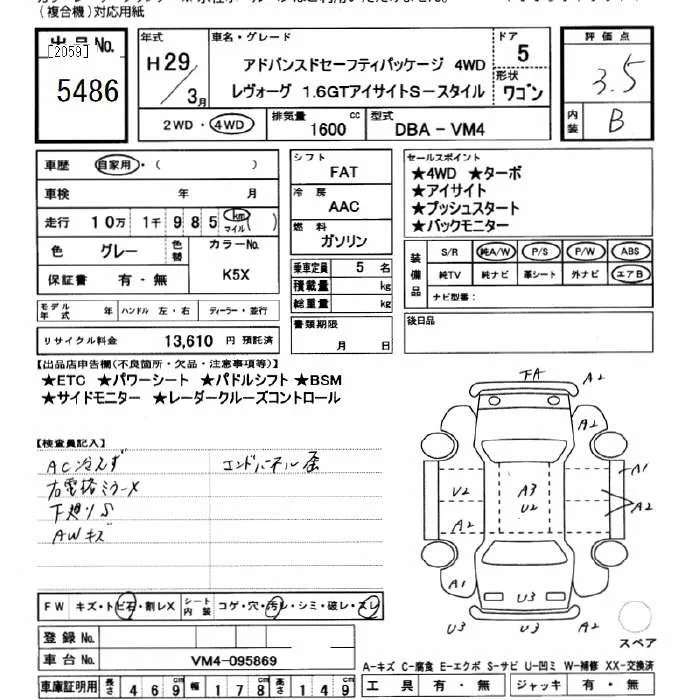 (複合機)対応用紙
出品No.
[2059]
5486
年式
H29/3月
車名・グレード
アドバンスドセーフティパッケージ 4WD
レヴォーグ 1.6GTアイサイトS-スタイル
ドア
5
形状
ワゴン
評価点
3.5
内装
B
2WD・4WD
排気量
1600 cc
型式
DBA - VM4
車歴 自家用・( )
車検 年 月
走行 10万 1千 985 km マイル ( )
色 グレー 色替 カラーNo.
保証書 有・無 K5X
モデル年式 年 ハンドル 左・右 ディーラー・並行
リサイクル料金 13,610 円 預託済
シフト
FAT
冷房
AAC
燃料
ガソリン
乗車定員 5 名
積載量 kg
総重量 kg
書類期限
月 日
セールスポイント
★4WD ★ターボ
★アイサイト
★プッシュスタート
★バックモニター
装備品
S/R 純A/W P/S P/W ABS
純TV 純ナビ 革シート 外ナビ エアB
ナビ型番:
後日品
【出品店申告欄(不良箇所・欠品・注意事項等)】
★ETC ★パワーシート ★パドルシフト ★BSM
★サイドモニター ★レーダークルーズコントロール
【検査員記入】
AC冷えず
右電格ミラーX
下廻りS
AWキズ
エンドパネル歪
FA A2
A2
A1
V2 A3 U2
A2
A2
A1 U3 A2
U3 U3 A2
スペア
FW キズ・トビ石・割レX シート内装 コゲ・穴・汚レ・シミ・破レ・スレ
登録No.
車台No. VM4-095869
車庫証明用 長さ 469 cm 幅 178 cm 高さ 149 cm
A-キズ C-腐食 E-エクボ S-サビ U-凹ミ W-補修 XX-交換済
工具 有・無 ジャッキ 有・無